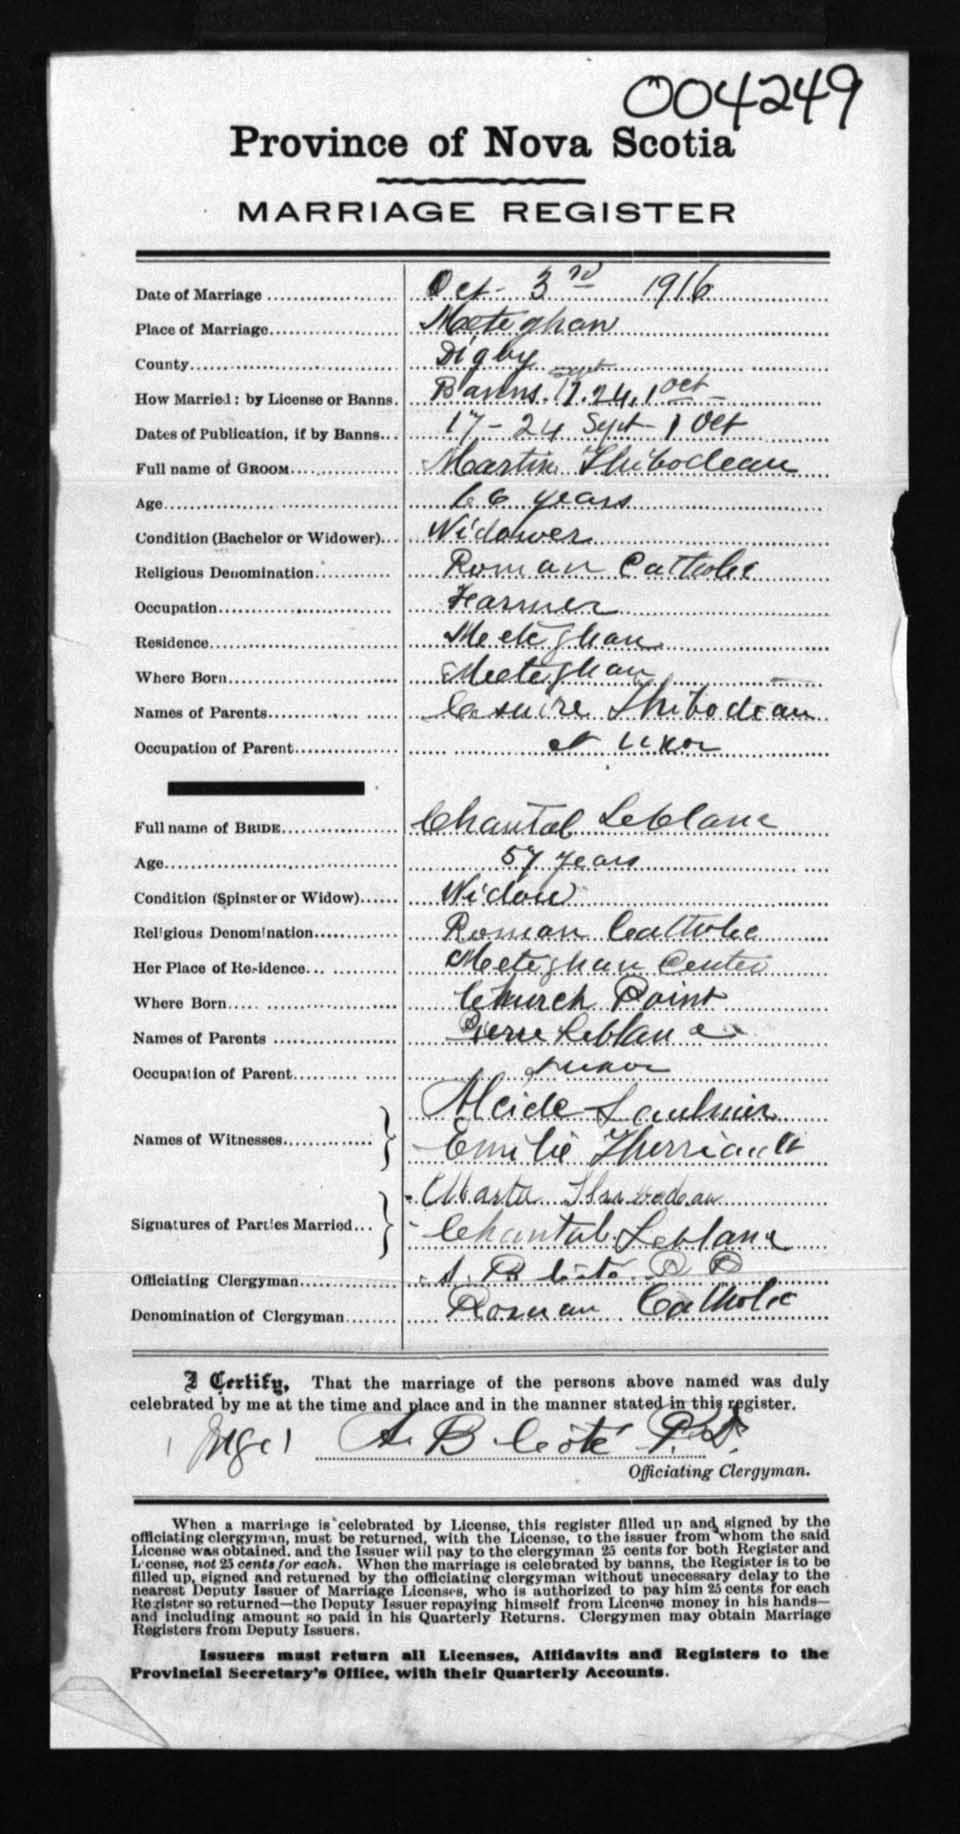 004249
Province of Nova Scotia
MARRIAGE REGISTER
Date of Marriage Oct 3rd 1916
Place of Marriage Meteghan
County Digby
How Married: by License or Banns. Banns. Sept 17.24.1 Oct
Dates of Publication, if by Banns 17-24 Sept-1 Oct
Full name of GROOM Martin Thibodeau
Age 66 years
Condition (Bachelor or Widower) Widower
Religious Denomination Roman Catholic
Occupation Farmer
Residence Meteghan
Where Born Meteghan
Names of Parents Thibodeau
Occupation of Parent et uxor
Full name of BRIDE Chantal Leblanc
Age 57 years
Condition (Spinster or Widow) Widow
Religious Denomination Roman Catholic
Her Place of Residence Meteghan Center
Where Born Church Point
Names of Parents Pierre Leblanc
Occupation of Parent uxor
Alcide Saulnier
Names of Witnesses
Emilie Therriault
Martin Thibodeau
Signatures of Parties Married
Chantal Leblanc
Officiating Clergyman A. B Coté P P
Denomination of Clergyman Roman Catholic
I Certify, That the marriage of the persons above named was duly
celebrated by me at the time and place and in the manner stated in this register.
A. B Coté P.P.
Officiating Clergyman.
When a marriage is celebrated by License, this register filled up and signed by the
officiating clergyman, must be returned, with the License, to the issuer from whom the said
License was obtained, and the Issuer will pay to the clergyman 25 cents for both Register and
License, not 25 cents for each. When the marriage is celebrated by banns, the Register is to be
filled up, signed and returned by the officiating clergyman without unecessary delay to the
nearest Deputy Issuer of Marriage Licenses, who is authorized to pay him 25 cents for each
Register so returned—the Deputy Issuer repaying himself from License money in his hands—
and including amount so paid in his Quarterly Returns. Clergymen may obtain Marriage
Registers from Deputy Issuers.
Issuers must return all Licenses, Affidavits and Registers to the
Provincial Secretary's Office, with their Quarterly Accounts.